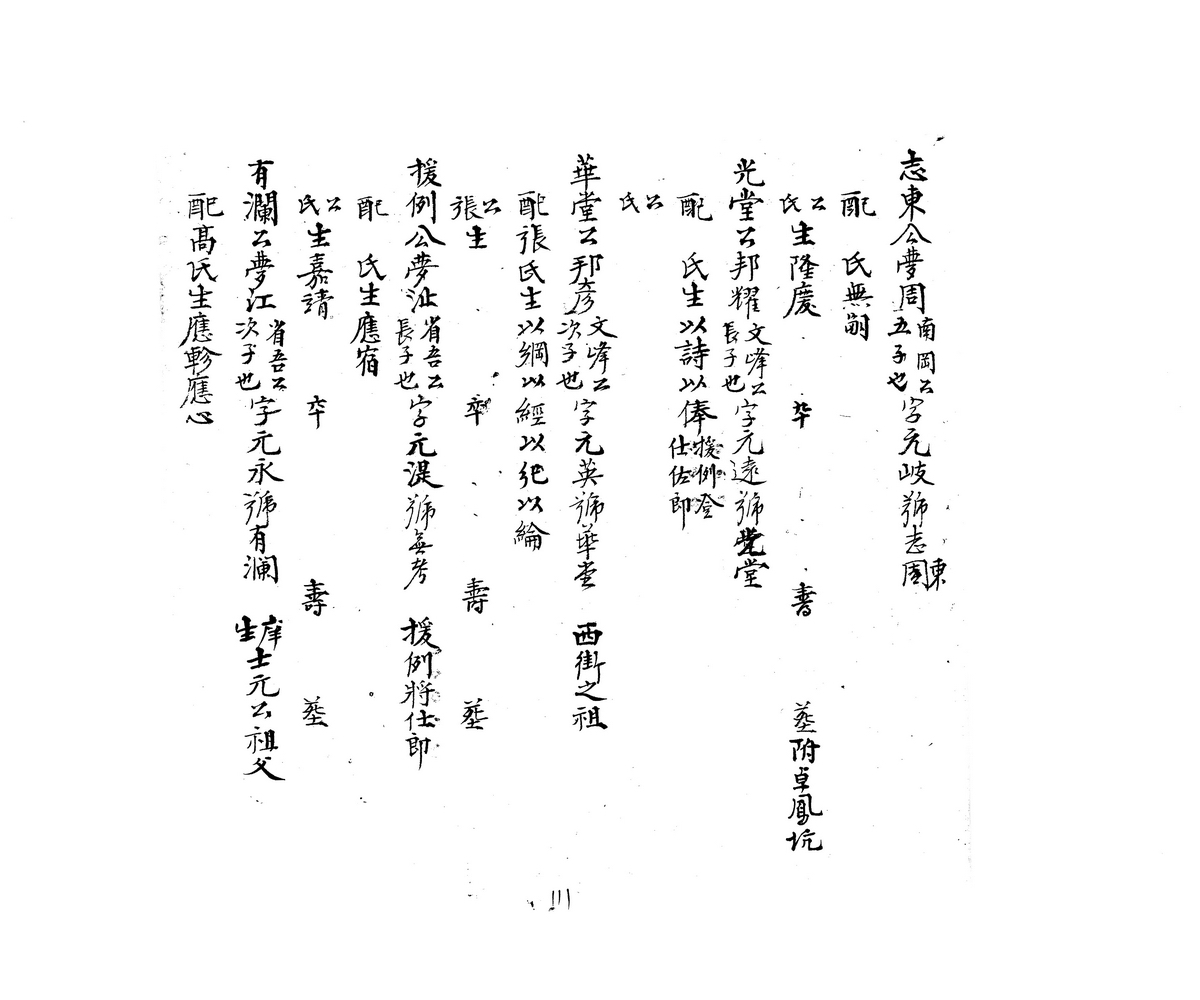 志東公夢周南岡公五子也字元岐號志周東
配　氏無嗣
公氏生隆慶　卒　壽　塟附卓鳳坑
光堂公邦耀文峰公長子也字元遠號堂
配　氏生以詩以俸援例登仕佐郎
公氏
華堂公邦彥文峰公次子也字元英號華堂　西街之祖
配張氏生以綱以經以紀以綸
公張生　卒　壽　塟
援例公夢沚省吾公長子也字元湜號無考　援例將仕郎
配　氏生應宿
公氏生嘉靖　卒　壽　塟
有瀾公夢江省吾公次子也字元永號有瀾　庠生士元公祖父
配高氏生應軫應心
111